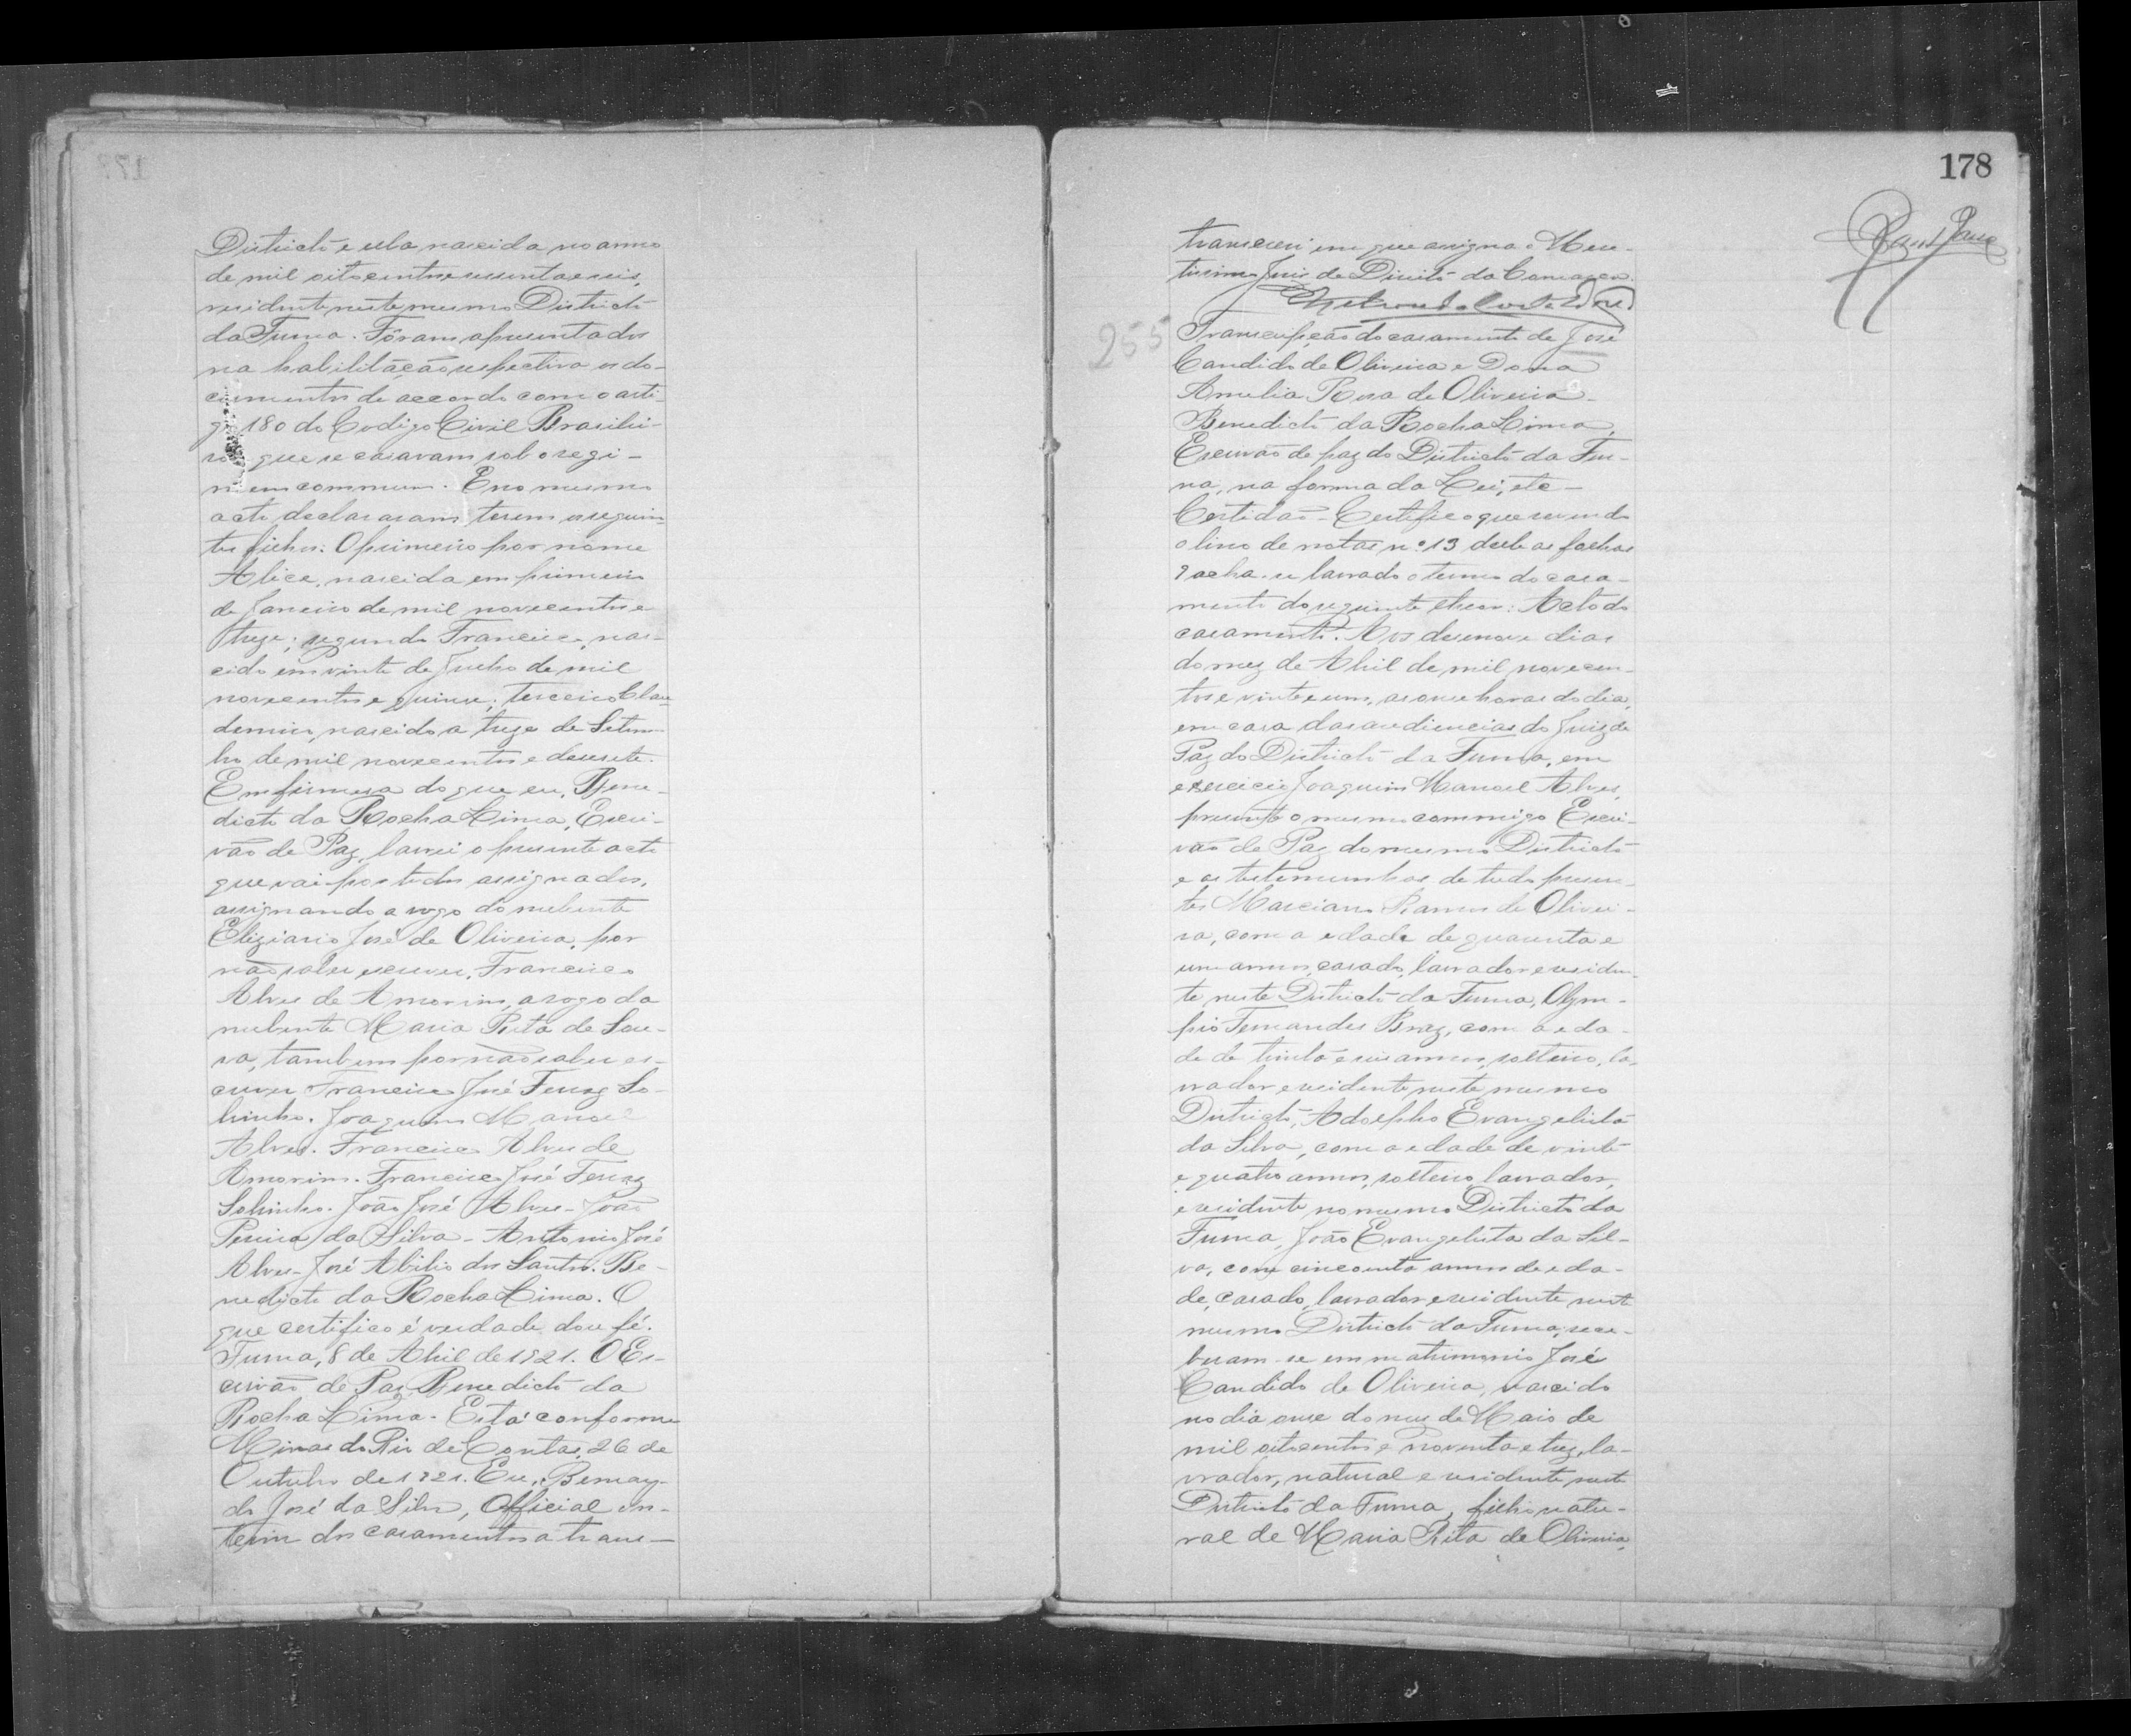 Districto e ella nascida no anno
de mil oitocentos e sessenta e seis,
residente neste mesmo Districto
da Furna. Fôram apresentados
na habilitação respectiva os do-
cumentos de accordo com o arti-
go 180 do Codigo Civil Brasilei-
ro que se casavam sob o regi-
mem commum. E no mesmo
acto declararam terem os seguin-
tes filhos: O primeiro por nome
Alice, nascida em primeiro
de Janeiro de mil novecentos e
treze; segundo Francisco, nas-
cido em vinte de Julho de mil
novecentos e quinse; terceiro Clau-
demiro, nascido a treze de Setem-
bro de mil novecentos e desesete.
Em firmesa do que eu, Bene-
dicto da Rocha Lima, Escri-
vão de Paz, lavrei o presente acto
que vai por todos assignados,
assignando a rogo do nubente
Eliziario José de Oliveira, por
não saber escrever, Francisco
Alves de Amorim, a rogo da
nubente Maria Rita de Sou-
sa, tambem por não saber es-
crever Francisco José Ferraz So-
brinho. Joaquim Manoel
Alves. Francisco Alves de
Amorim. Francisco José Ferraz
Sobrinho. João José Alves - João
Pereira da Silva - Antonio José
Alves - José Abilio dos Santos. Be-
nedicto da Rocha Lima. O
que certifico é verdade dou fé.
Furna, 8 de Abril de 1921. O Es-
crivão de Paz Benedicto da
Rocha Lima - Está conforme
Minas do Rio de Contas, 26 de
Outubro de 1921. Eu, Bernar-
do José da Silva, Official in-
terim dos casamentos a trans-
178
transcrevi em que assigna o Mere-
tissimo Juiz de Direito da Comarca.
255
Transcripção do casamento de José
Candido de Oliveira e Dona
Amelia Rosa de Oliveira -
Benedicto da Rocha Lima,
Escrivão de paz do Districto da Fur-
na, na forma da Lei, etc -
Certidão - Certifico que revendo
o livro de notas nº 13 delle as folhas
9 acha-se lavrado o termo do casa-
mento do seguinte theor: Acto do
casamento. Aos desenove dias
do mez de Abril de mil novecen-
tos e vinte e um, as onse horas do dia,
em casa das audiencias do Juiz de
Paz do Districto da Furna, em
exercicio Joaquim Manoel Alves,
presente o mesmo commigo Escri-
vão de Paz do mesmo Districto
e as testemunhas de tudo presen-
tes Marciano Ramos de Olivei-
ra, com a edade de quarenta e
um annos, casado, lavrador e residen-
te neste Districto da Furna, Olym-
pio Fernandes Braz, com a eda-
de de trinta e seis annos, solteiro, la-
vrador e residente neste mesmo
Districto, Adolpho Evangelista
da Silva, com a edade de vinte
e quatro annos, solteiro, lavrador,
e residente no mesmo Districto da
Furna, João Evangelista da Sil-
va, com cincoenta annos de eda-
de, casado, lavrador e residente neste
mesmo Districto da Furna, rece-
beram-se em matrimonio José
Candido de Oliveira, nascido
no dia onse do mez de Maio de
mil oitocentos e noventa e trez, la-
vrador, natural e residente neste
Districto da Furna, filho natu-
ral de Maria Rita de Oliveira,